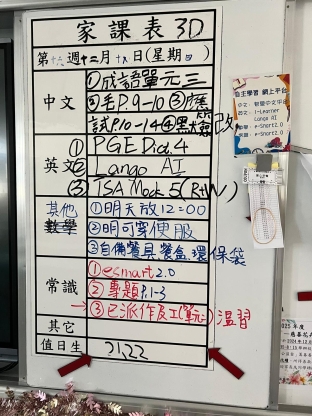 家課表 3D
第十六週十二月十八日(星期四)
中文
①成語單元三
②毛P.9-10 ③應
試P.10-14 ④黑
改
英文
① PGE Dict.4
② Lango AI
③ TSA Mock 5(R+W)
其他
數學
①明天放12=00
②明可穿便服
③自備餐具餐盒環保袋
常識
①esmart2.0
②專題P.1-3
→③已派作及工(單元一)溫習
其它
值日生
21,22
自主學習 網上平台
中文:智愛中文平台
i-Learner
Lango AI
e-Smart2.0
e-Smart2.0
2025 年度